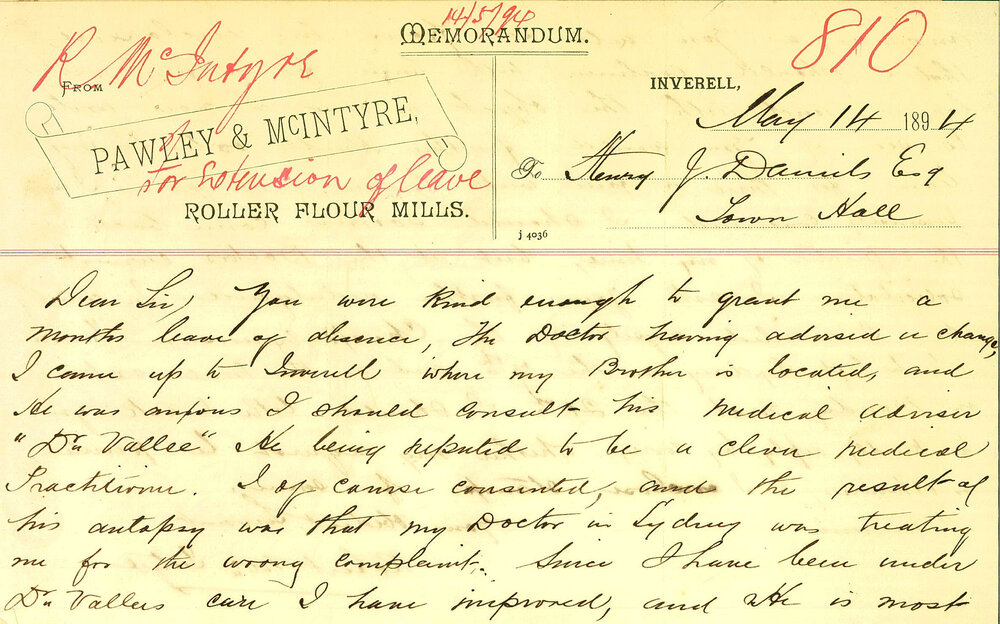 14/5/94
MEMORANDUM.
810
R McIntyre
FROM
INVERELL,
May 14 1894
PAWLEY & McINTYRE,
For Extension of leave
ROLLER FLOUR MILLS.
To Henry J. Daniels Esq
Town Hall
j 4036
Dear Sir, You were kind enough to grant me a
months leave of absence, the Doctor having advised a change,
I came up to Inverell where my Brother is located, and
He was anxious I should consult his medical adviser
"Dr Vallee" He being reputed to be a clever medical
Practitioner. I of course consented, and the result of
his autopsy was that my Doctor in Sydney was treating
me for the wrong complaint. Since I have been under
Dr Vallees care I have improved, and He is most